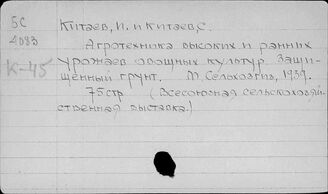 БС
4083
К-45
Китаев, И. и Китаев, С.
Агротехника высоких и ранних
урожаев овощных культур. Защи-
щенный грунт. М. Сельхозгиз, 1939.
75 стр (Всесоюзная сельскохозяй-
ственная выставка.)